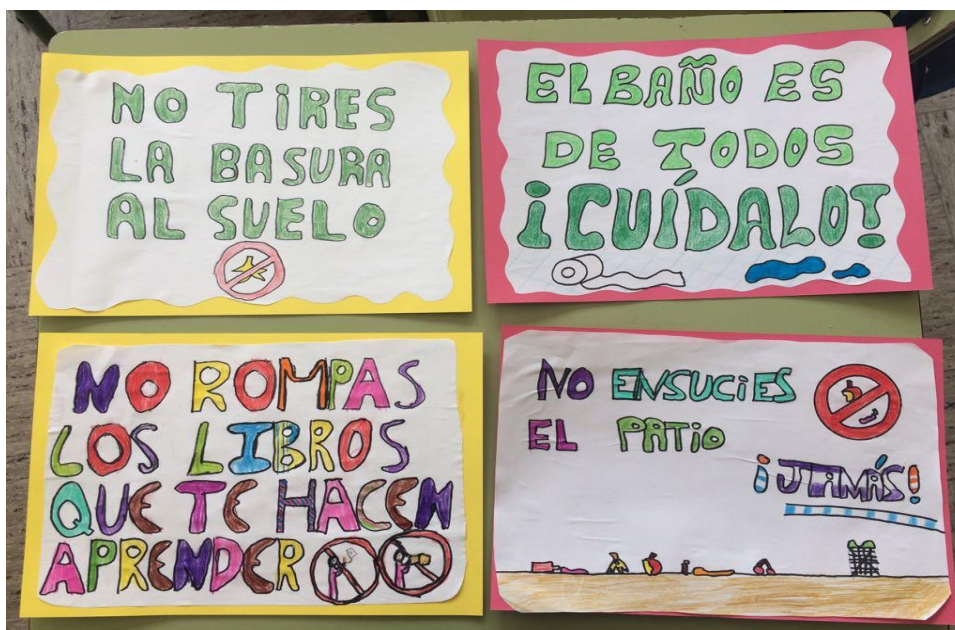 NO TIRES
LA BASURA
AL SUELO
EL BAÑO ES
DE TODOS
¡CUÍDALO!
NO ROMPAS
LOS LIBROS
QUE TE HACEN
APRENDER
NO ENSUCiES
EL PATiO
¡JAMÁS!